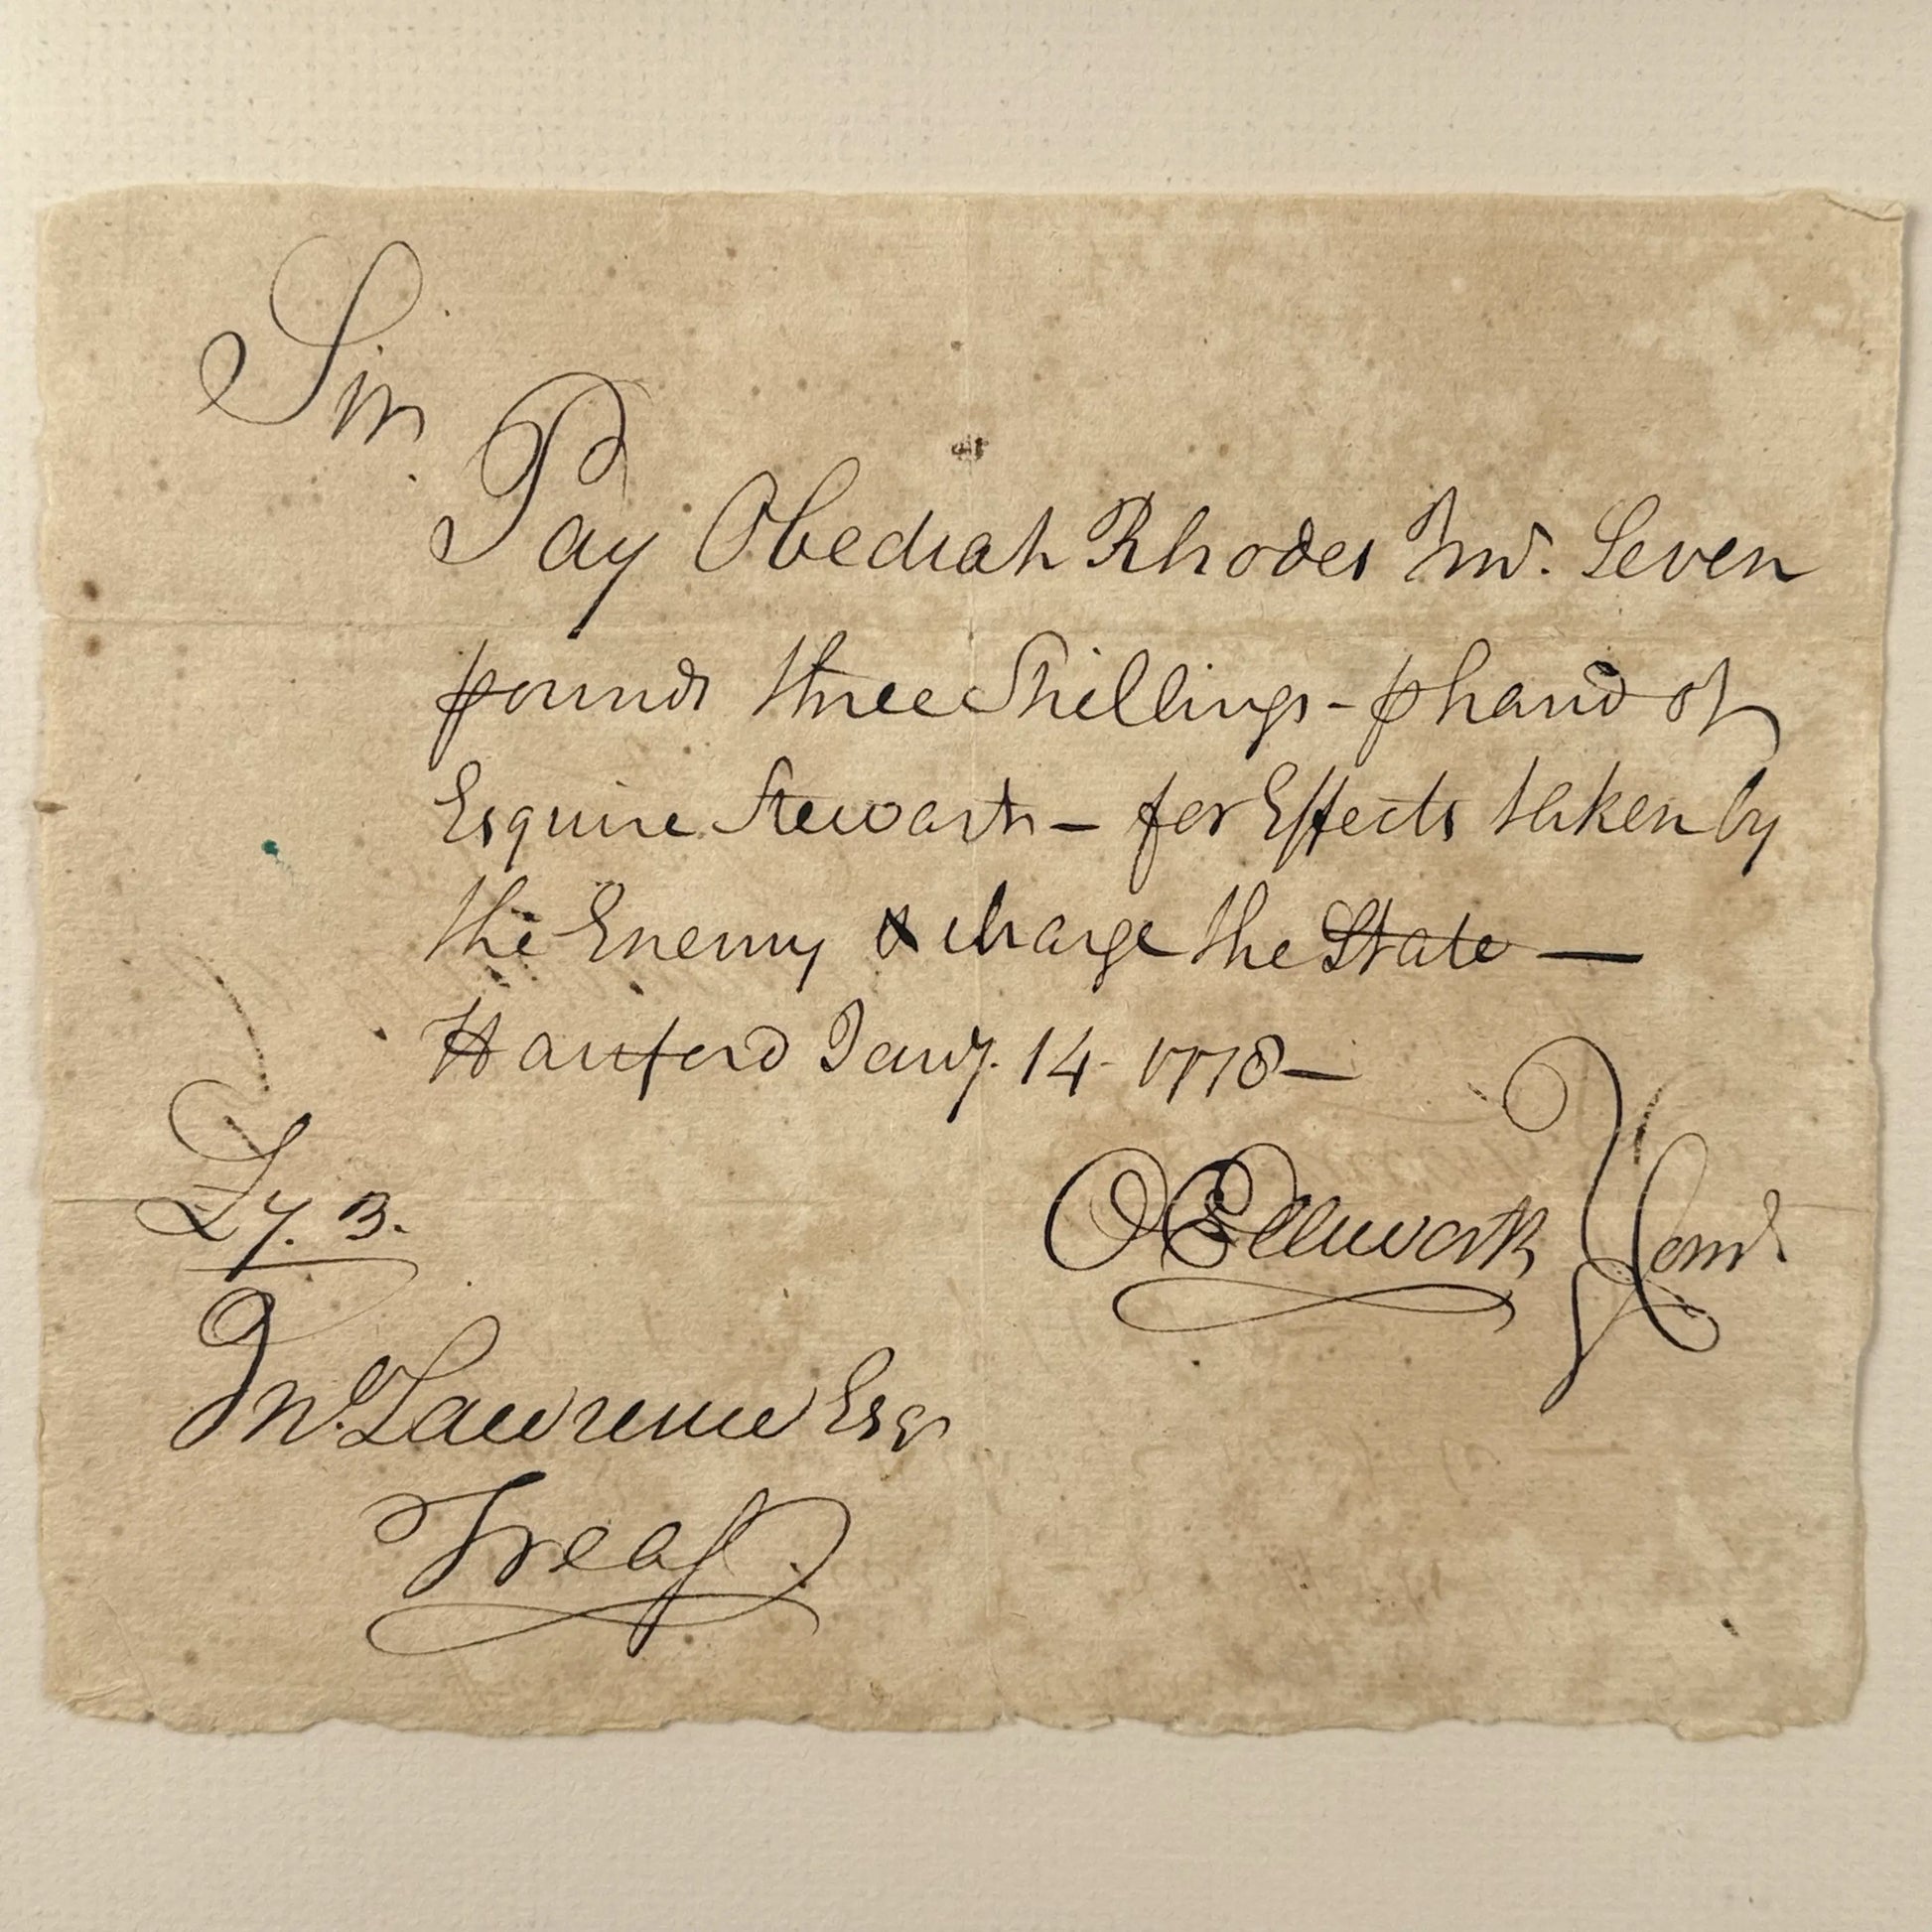 Sir.
Pay Obediah Rhodes Junr. Seven
pounds three Shillings - ⅌ hand of
Esquire Stewart - for Effects taken by
the Enemy & charge the State —
Hartford Jany. 14 - 1778 —
£7. 3.
O Ellsworth } Comtt
Jno. Lawrence Esqr
Treasr.